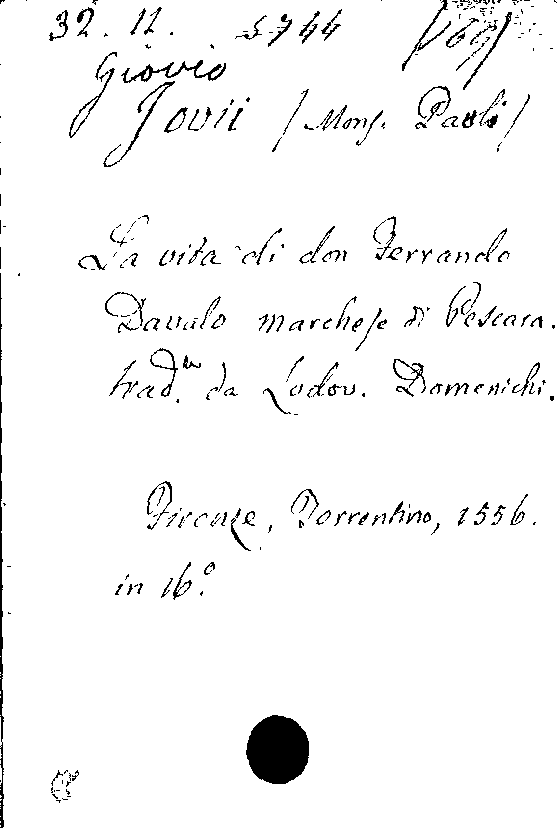 32. 11. 5744 /69/
Giovio
Jovii / Mons. Paoli /
La vita di don Ferrando
Davalo marchese di Pescara.
trad.ta da Lodov. Domenichi.
Firenze, Torrentino, 1556.
in 16.o